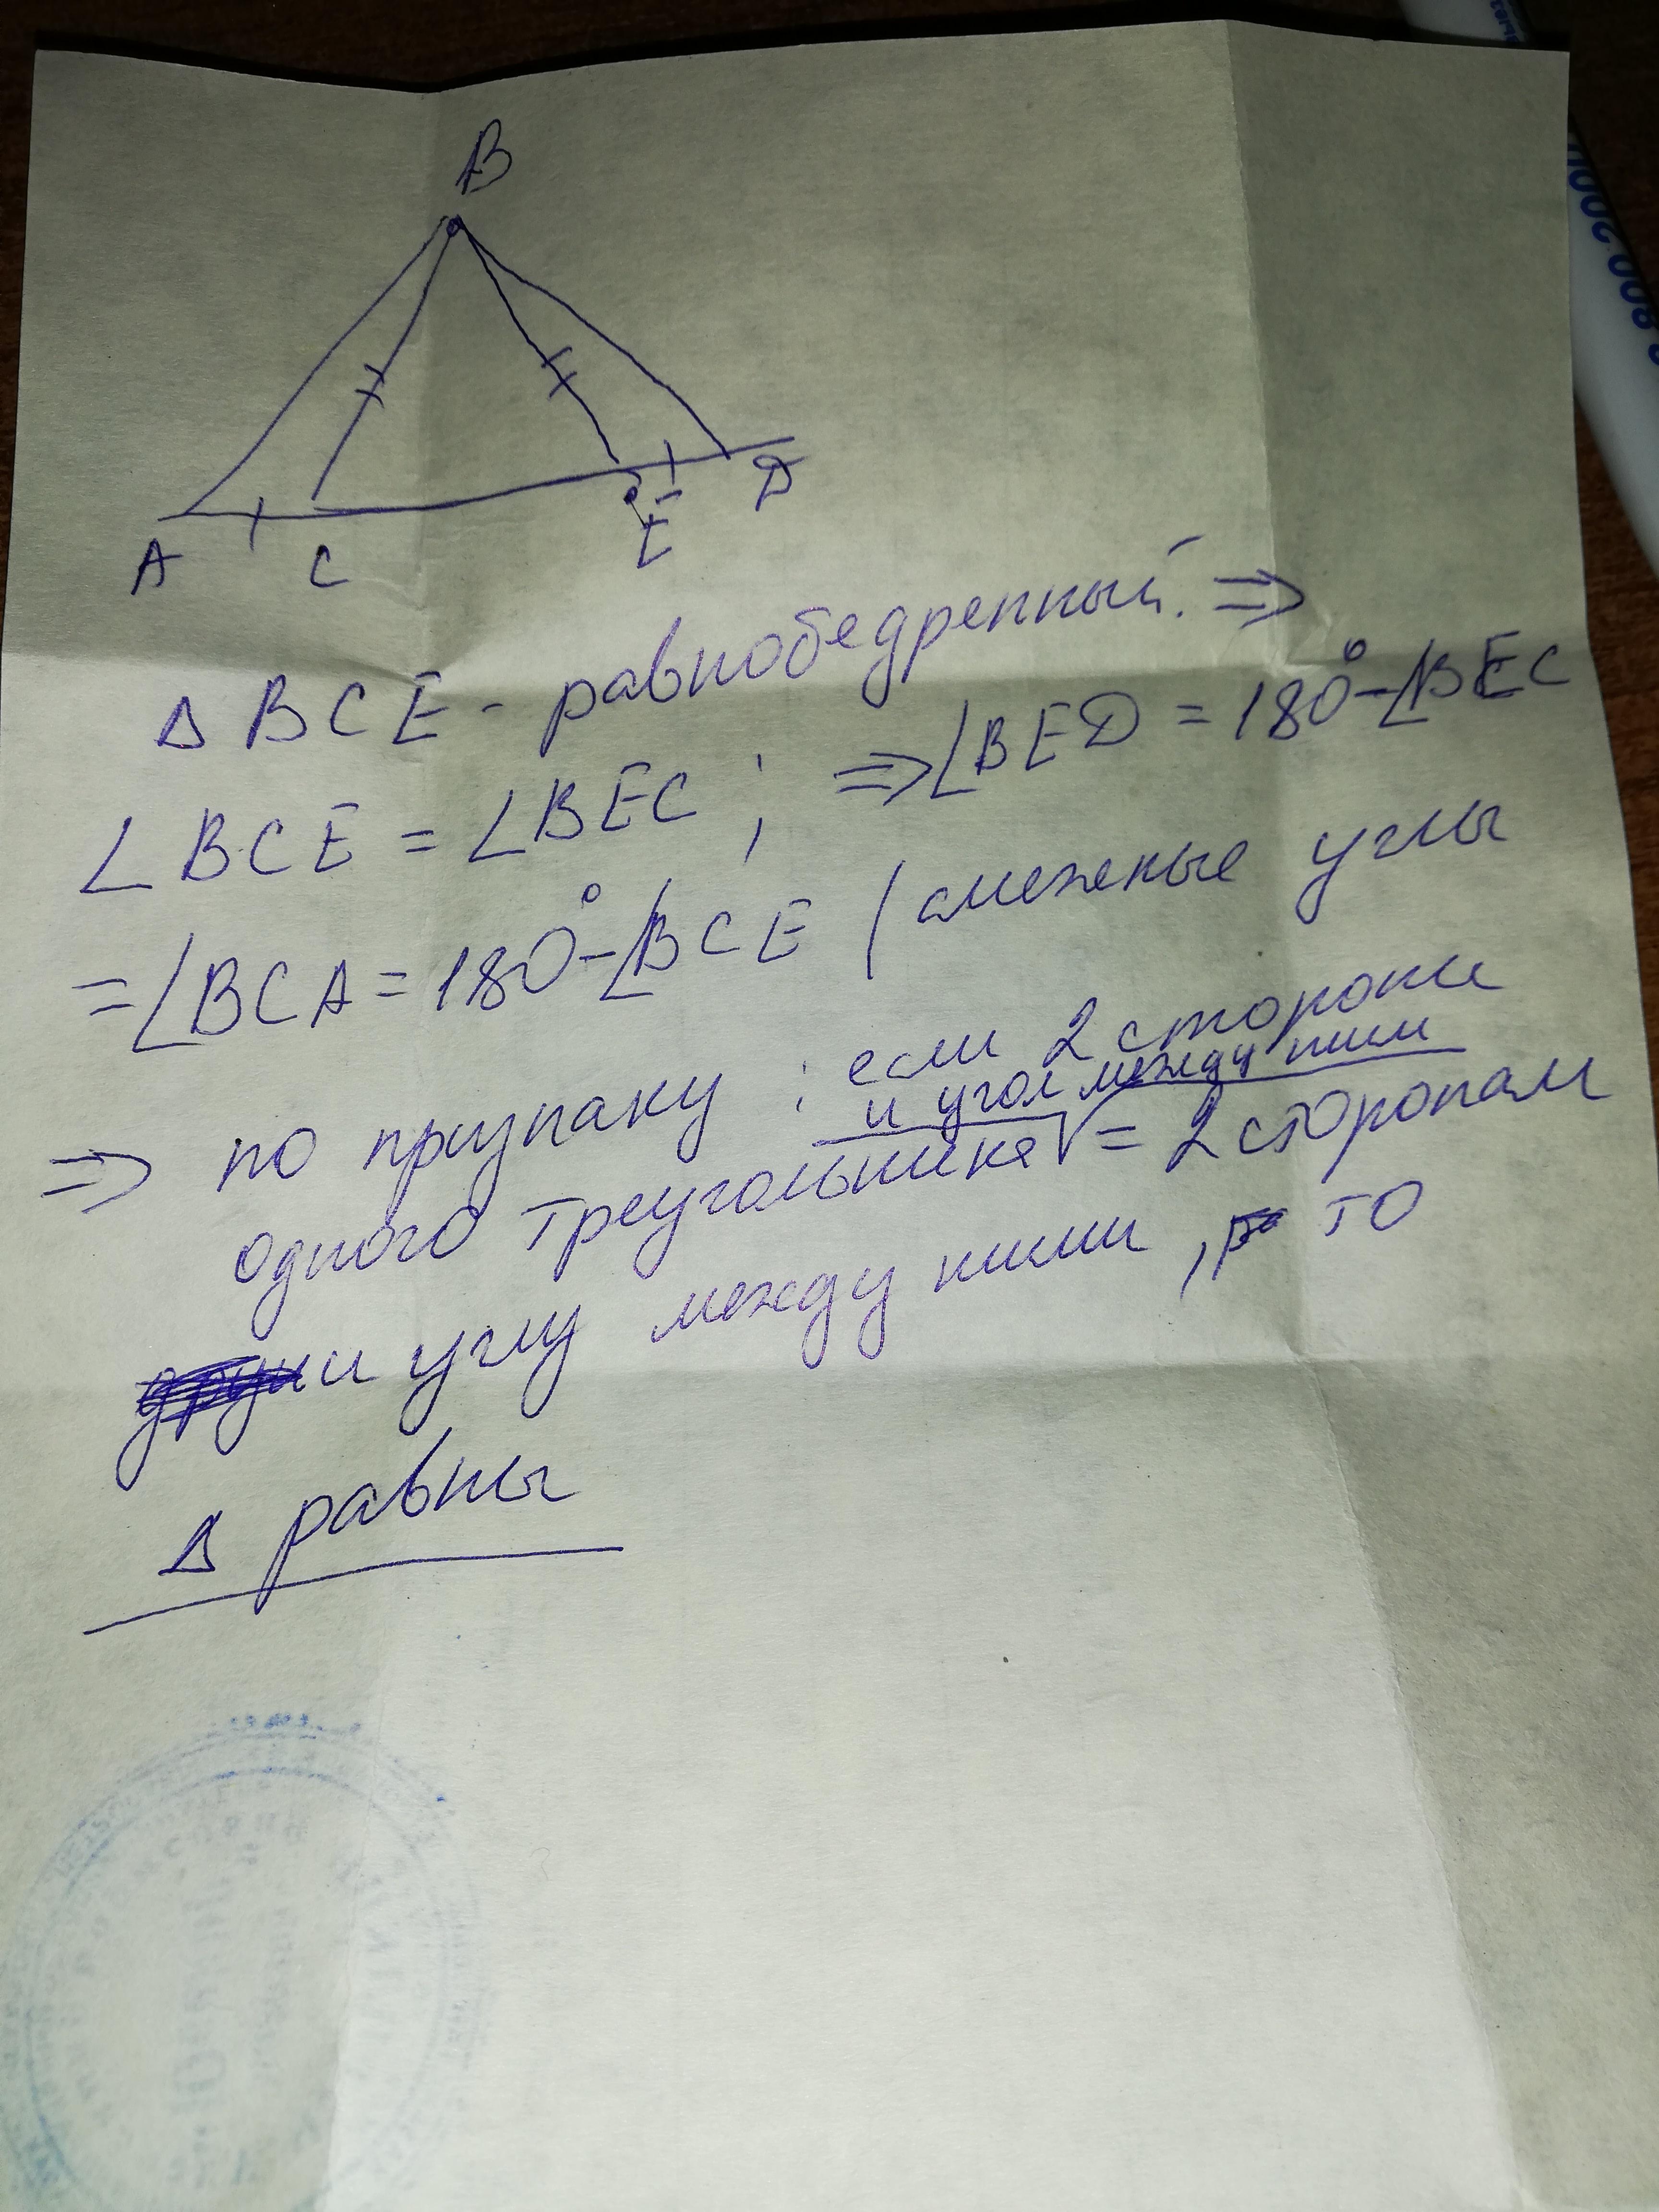 B
A
C
E
D
Δ BCE - равнобедренный. ⇒
∠BCE = ∠BEC ; ⇒ ∠BED = 180° - ∠BEC
= ∠BCA = 180° - ∠BCE (смежные углы
⇒ по признаку : если 2 стороны
и угол между ними
одного треугольника √ = 2 сторонам
и углу между ними , то
Δ равны